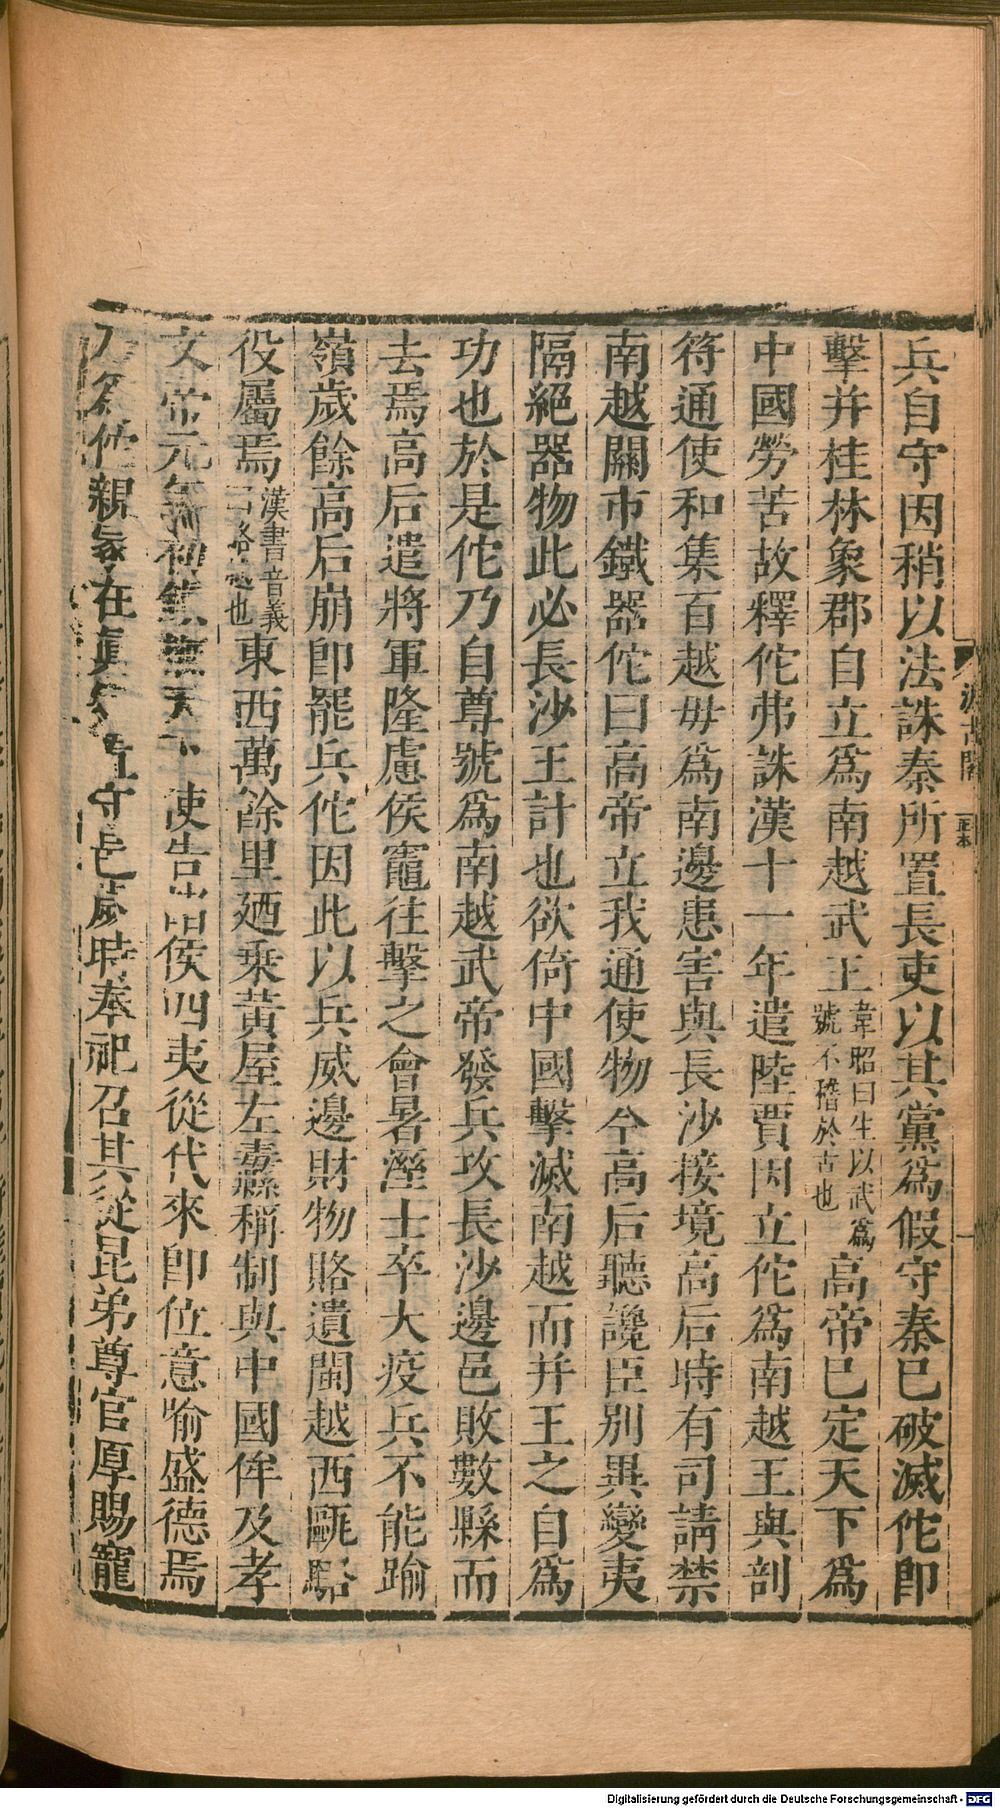 兵自守因稍以法誅秦所置長吏以其黨爲假守秦已破滅佗卽
擊并桂林象郡自立爲南越武王韋昭曰生以武爲號不稽於古也高帝已定天下爲
中國勞苦故釋佗弗誅漢十一年遣陸賈因立佗爲南越王與剖
符通使和集百越毋爲南邊患害與長沙接境高后時有司請禁
南越關市鐵器佗曰高帝立我通使物今高后聽讒臣別異蠻夷
隔絕器物此必長沙王計也欲倚中國擊滅南越而并王之自爲
功也於是佗乃自尊號爲南越武帝發兵攻長沙邊邑敗數縣而
去焉高后遣將軍隆慮侯竈往擊之會暑溼士卒大疫兵不能踰
嶺歲餘高后崩卽罷兵佗因此以兵威邊財物賂遺閩越西甌駱
役屬焉漢書音義曰駱越也東西萬餘里廼乘黃屋左纛稱制與中國侔及孝
文帝元年初鎮撫天下使告諸侯四夷從代來卽位意喻盛德焉
乃爲佗親冢在眞定置守邑歲時奉祀召其從昆弟尊官厚賜寵
汲古閣
正本
Digitalisierung gefördert durch die Deutsche Forschungsgemeinschaft - DFG